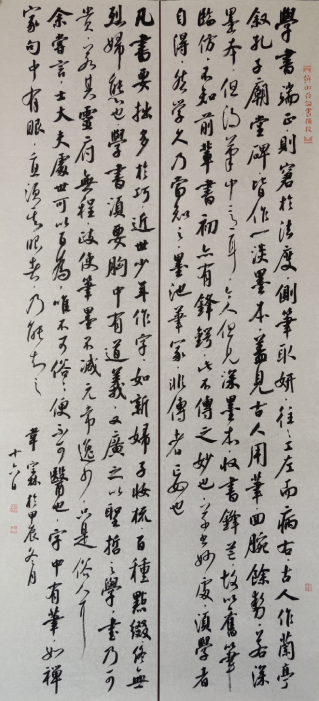 學書端正則窘於法度側筆取妍往往工左而病右古人作蘭亭
敘孔子廟堂碑皆作一淡墨本蓋見古人用筆回腕餘勢若深
墨本但得筆中意耳今人但見深墨本收書鋒芒故以舊筆
臨仿不知前輩書初亦有鋒鍔此不傳之妙也草書妙處須學者
自得然學久乃當知之墨池筆冢非傳者妄也
凡書要拙多於巧近世少年作字如新婦子妝梳百種點綴終無
烈婦態也學書須要胸中有道義又廣之以聖哲之學書乃可
貴若其靈府無程政使筆墨不減元常逸少只是俗人耳
余嘗言士大夫處世可以百為唯不可俗俗便不可醫也字中有筆如禪
家句中有眼直須具眼者乃能知之
霖於甲辰冬月
十六日